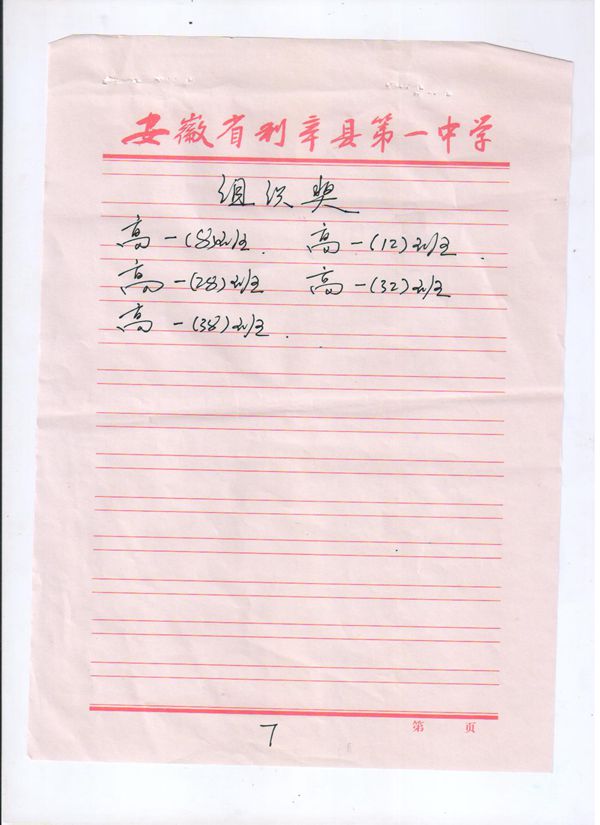 安徽省利辛县第一中学
组织奖
高一(8)班. 高一(12)班.
高一(28)班 高一(32)班
高一(38)班.
第 页
7